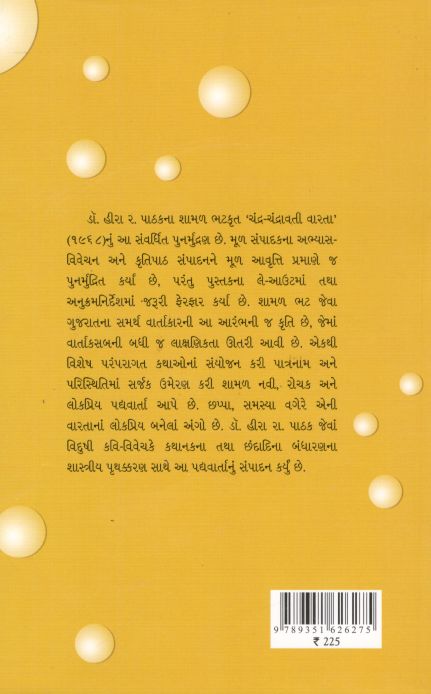 ડૉ. હીરા ર. પાઠકના શામળ ભટકૃત ‘ચંદ્ર-ચંદ્રાવતી વારતા’
(૧૯૬૮)નું આ સંવર્ધિત પુનર્મુદ્રણ છે. મૂળ સંપાદકના અભ્યાસ-
વિવેચન અને કૃતિપાઠ સંપાદનને મૂળ આવૃત્તિ પ્રમાણે જ
પુનર્મુદ્રિત કર્યાં છે, પરંતુ પુસ્તકના લે-આઉટમાં તથા
અનુક્રમનિર્દેશમાં જરૂરી ફેરફાર કર્યા છે. શામળ ભટ જેવા
ગુજરાતના સમર્થ વાર્તાકારની આ આરંભની જ કૃતિ છે, જેમાં
વાર્તાકસબની બધી જ લાક્ષણિકતા ઊતરી આવી છે. એકથી
વિશેષ પરંપરાગત કથાઓનાં સંયોજન કરી પાત્રંનામ અને
પરિસ્થિતિમાં સર્જક ઉમેરણ કરી શામળ નવી, રોચક અને
લોકપ્રિય પદ્યવાર્તા આપે છે. છપ્પા, સમસ્યા વગેરે એની
વારતાનાં લોકપ્રિય બનેલાં અંગો છે. ડૉ. હીરા રા. પાઠક જેવાં
વિદુષી કવિ-વિવેચકે કથાનકના તથા છંદાદિના બંધારણના
શાસ્ત્રીય પૃથક્કરણ સાથે આ પદ્યવાર્તાનું સંપાદન કર્યું છે.
9 789351 626275
₹ 225